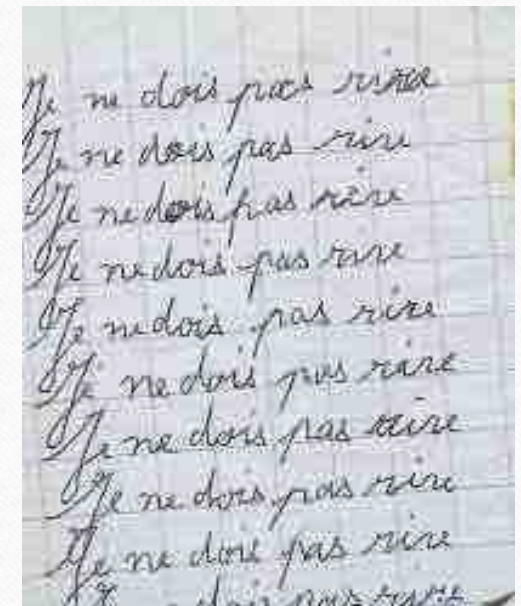 Je ne dois pas rire
Je ne dois pas rire
Je ne dois pas rire
Je ne dois pas rire
Je ne dois pas rire
Je ne dois pas rire
Je ne dois pas rire
Je ne dois pas rire
Je ne dois pas rire
dois pas rire